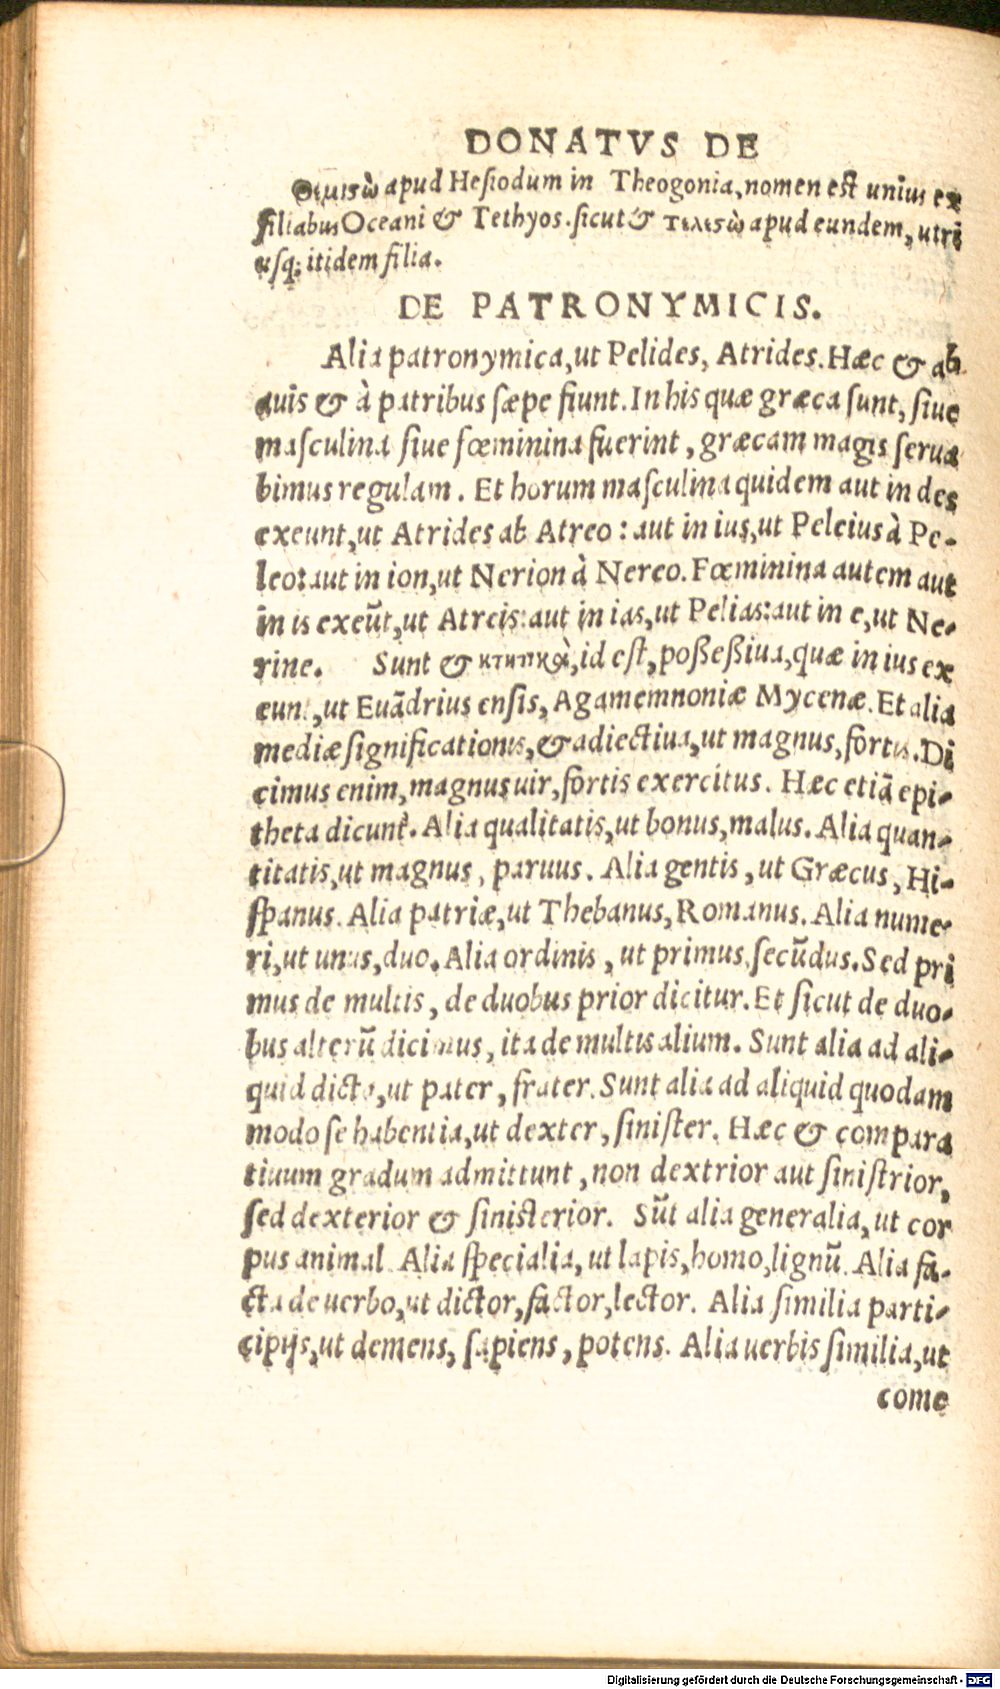 DONATVS DE
Θεμιςὼ apud Hesiodum in Theogonia, nomen est unius ex
filiabus Oceani & Tethyos. sicut & τελεςὼ apud eundem, utri
usq; itidem filia.
DE PATRONYMICIS.
Alia patronymica, ut Pelides, Atrides. Hæc & ab
auis & à patribus sæpe fiunt. In his quæ græca sunt, siue
masculina siue fœminina fuerint, græcam magis serua
bimus regulam. Et horum masculina quidem aut in des
exeunt, ut Atrides ab Atreo: aut in ius, ut Peleius à Pe-
leo: aut in ion, ut Nerion à Nereo. Fœminina autem aut
in is exeūt, ut Atreis: aut in ias, ut Pelias: aut in e, ut Ne-
rine. Sunt & κτητικὰ, id est, poßeßiua, quæ in ius ex
eunt, ut Euādrius ensis, Agamemnoniæ Mycenæ. Et alia
mediæ significationis, & adiectiua, ut magnus, fortis. Di
cimus enim, magnus uir, fortis exercitus. Hæc etiā epi-
theta dicunt. Alia qualitatis, ut bonus, malus. Alia quan-
titatis, ut magnus, paruus. Alia gentis, ut Græcus, Hi-
spanus. Alia patriæ, ut Thebanus, Romanus. Alia nume-
ri, ut unus, duo. Alia ordinis, ut primus, secūdus. Sed pri
mus de multis, de duobus prior dicitur. Et sicut de duo-
bus alterū dicimus, ita de multis alium. Sunt alia ad ali-
quid dicta, ut pater, frater. Sunt alia ad aliquid quodam
modo se habentia, ut dexter, sinister. Hæc & compara
tiuum gradum admittunt, non dextrior aut sinistrior,
sed dexterior & sinisterior. Sūt alia generalia, ut cor
pus animal. Alia specialia, ut lapis, homo, lignū. Alia fa-
cta de uerbo, ut dictor, factor, lector. Alia similia parti-
cipijs, ut demens, sapiens, potens. Alia uerbis similia, ut
come
Digitalisierung gefördert durch die Deutsche Forschungsgemeinschaft - DFG